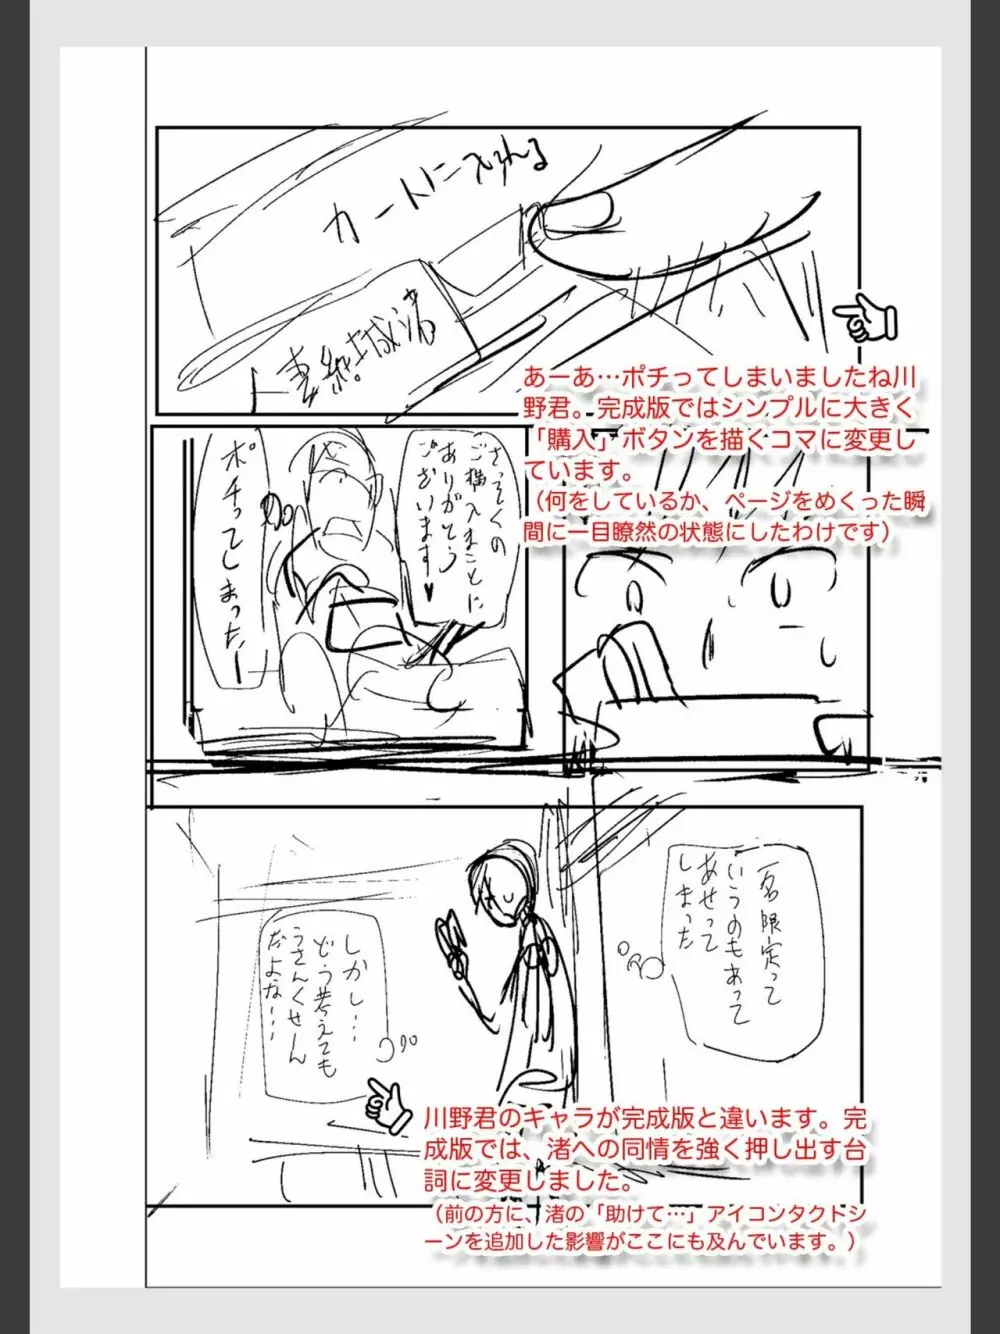 カートに入れる
あーあ…ポチってしまいましたね川
野君。完成版ではシンプルに大きく
「購入」ボタンを描くコマに変更し
ています。
（何をしているか、ページをめくった瞬
間に一目瞭然の状態にしたわけです）
さっそくの
ご購入まことに
ありがとう
ございます♥
ポチってしまった！
一名限定って
いうのもあって
あせって
しまった
しかし…
どう考えても
うさんくせーん
だよな…
川野君のキャラが完成版と違います。完
成版では、渚への同情を強く押し出す台
詞に変更しました。
（前の方に、渚の「助けて…」アイコンタクトシ
ーンを追加した影響がここにも及んでいます。）